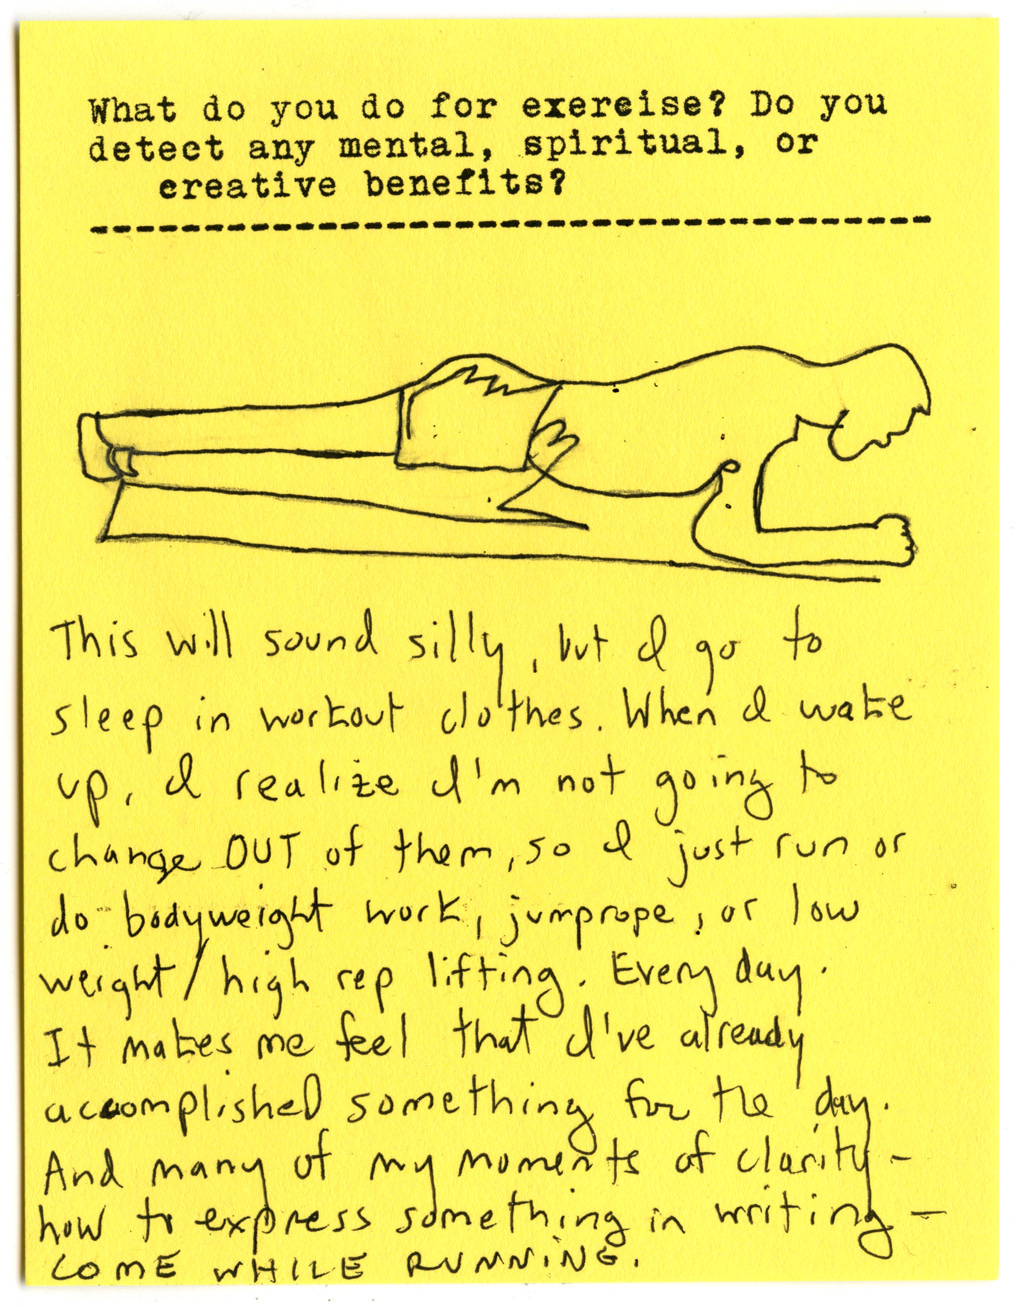 What do you do for exercise? Do you
detect any mental, spiritual, or
creative benefits?
This will sound silly, but I go to
sleep in workout clothes. When I wake
up, I realize I'm not going to
change OUT of them, so I just run or
do bodyweight work, jumprope, or low
weight/high rep lifting. Every day.
It makes me feel that I've already
accomplished something for the day.
And many of my moments of clarity -
how to express something in writing -
COME WHILE RUNNING.